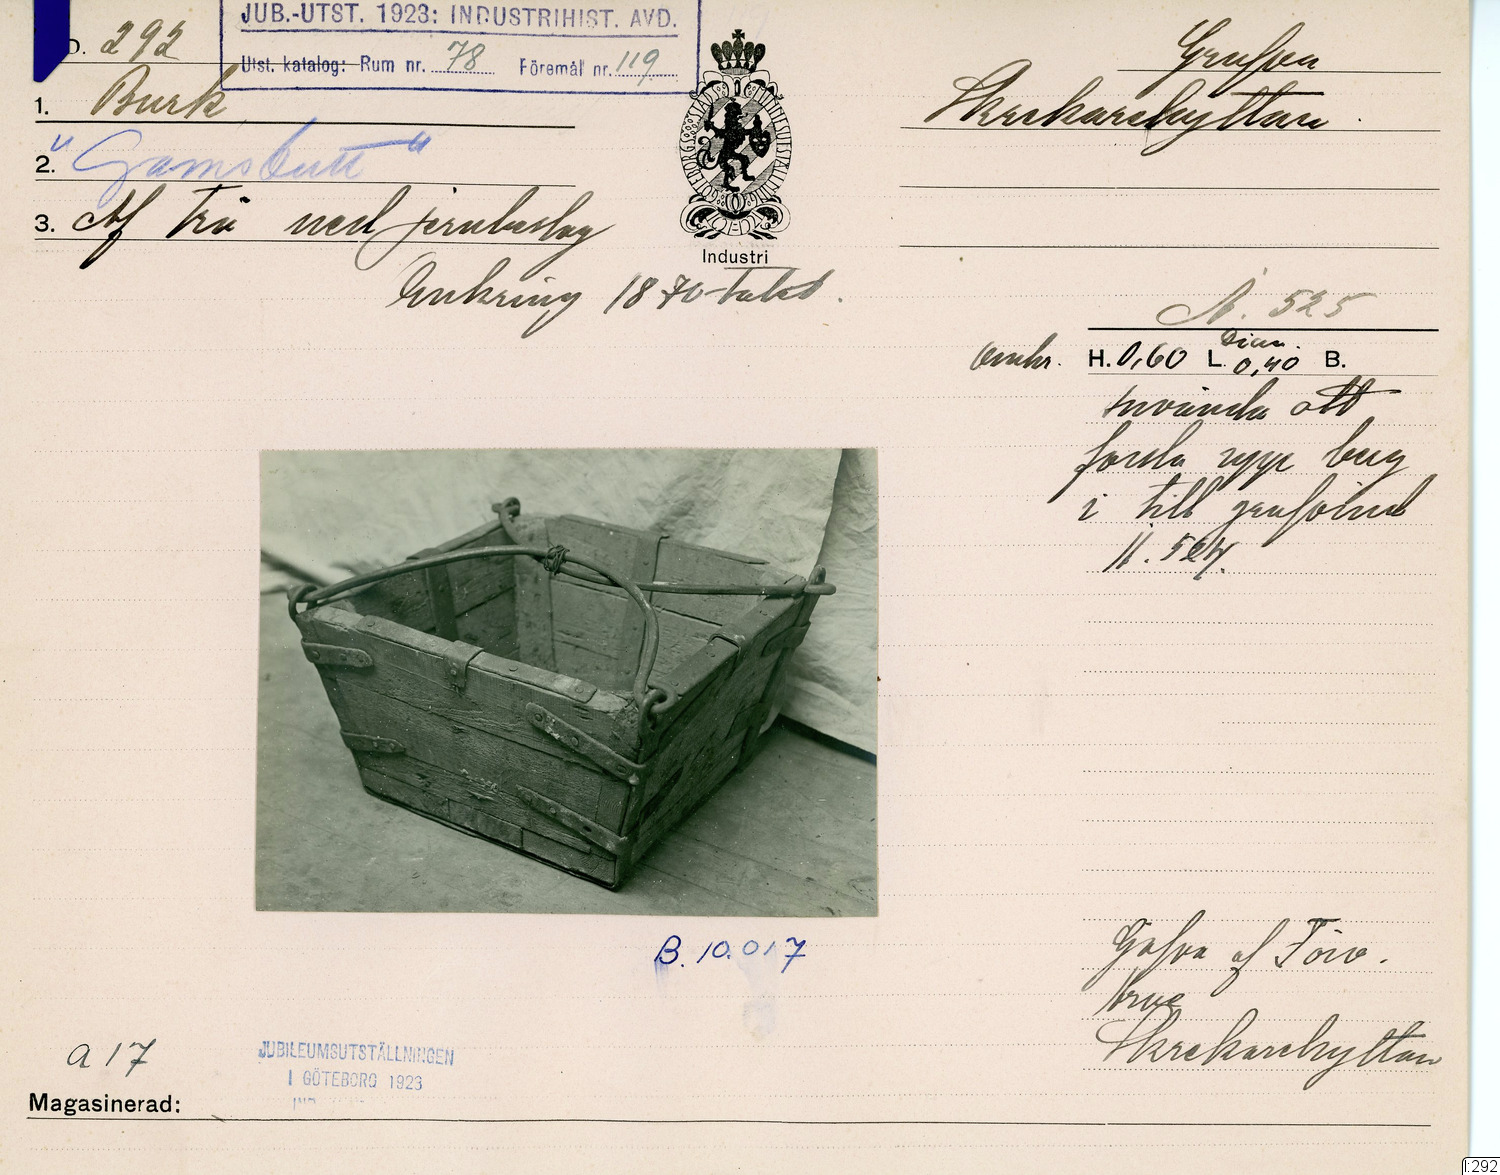 JUB.-UTST. 1923: INDUSTRIHIST. AVD.
Utst. katalog: Rum nr. 78 Föremål nr. 119
D. 292
1. Burk
2. "Gamsbutt"
3. Af trä med jernbeslag
Omkring 1870-talet.
GÖTEBORGS STADS JUBILEUMSUTSTÄLLNING
Industri
Grufva
Skrekarehyttan.
N. 525
omkr. H. 0,60 L. Diam. 0,40 B.
använda att
forsla upp berg
i till
N. 524.
B. 10.017
Gåfva af
Skrekarehyttan
a 17
JUBILEUMSUTSTÄLLNINGEN
I GÖTEBORG 1923
Magasinerad:
I:292